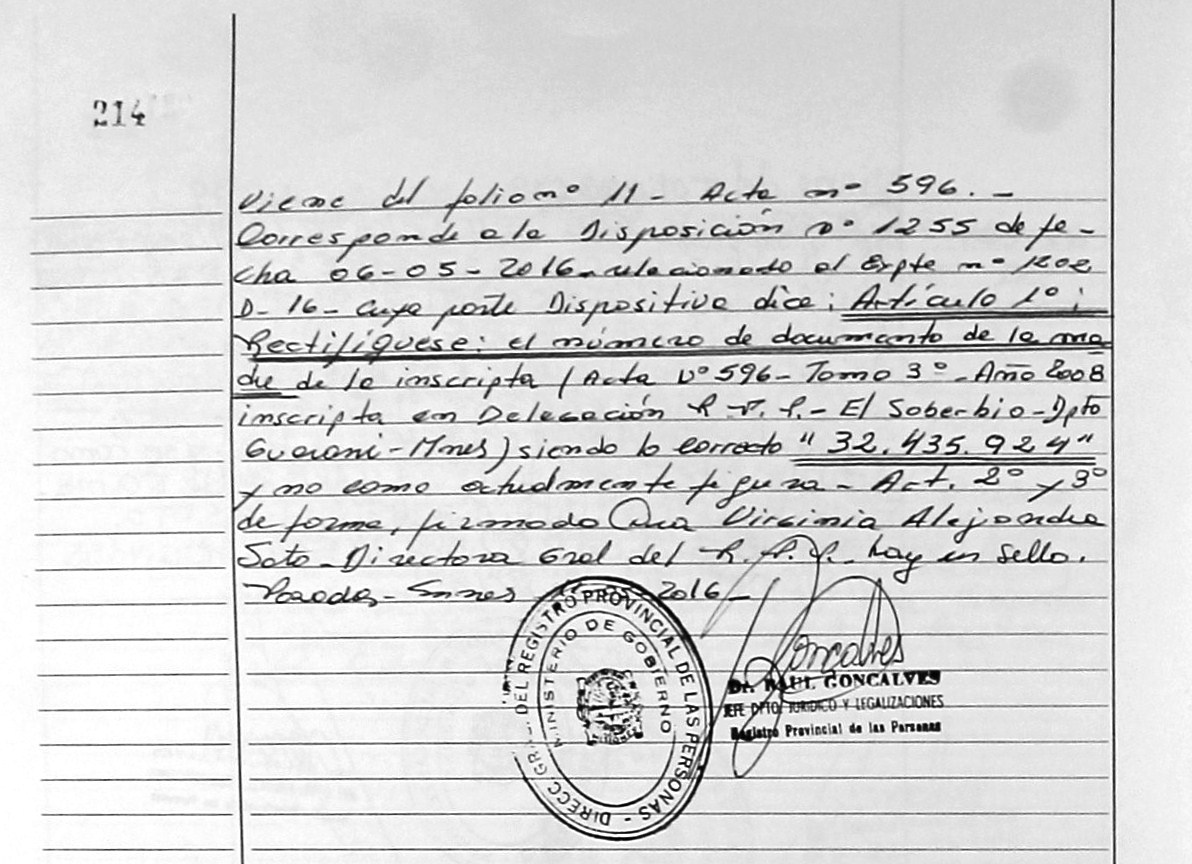 214
Viene del folio nº 11 - Acta nº 596. -
Corresponde a la Disposición nº 1255 de fe-
cha 06-05-2016 - relacionado al Expte nº 1202
D-16 - cuya parte Dispositiva dice: Artículo 1º:
Rectifíquese: el número de documento de la ma
dre de la inscripta (Acta Nº 596 - Tomo 3º - Año 2008
inscripta en Delegación R.P.P. - El Soberbio - Dpto
Guarani - Mnes) siendo lo correcto "32.435.924"
y no como actualmente figura - Art. 2º y 3º
de forma, firmado Dra Virginia Alejandra
Soto - Directora Gral del R.P.P. hay un sello.
Posadas - Mnes 2016 -
DIRECC. GRAL. DEL REGISTRO PROVINCIAL DE LAS PERSONAS -
MINISTERIO DE GOBIERNO
Goncalves
Dr. RAUL GONCALVES
JEFE DPTO. JURIDICO Y LEGALIZACIONES
Registro Provincial de las Personas